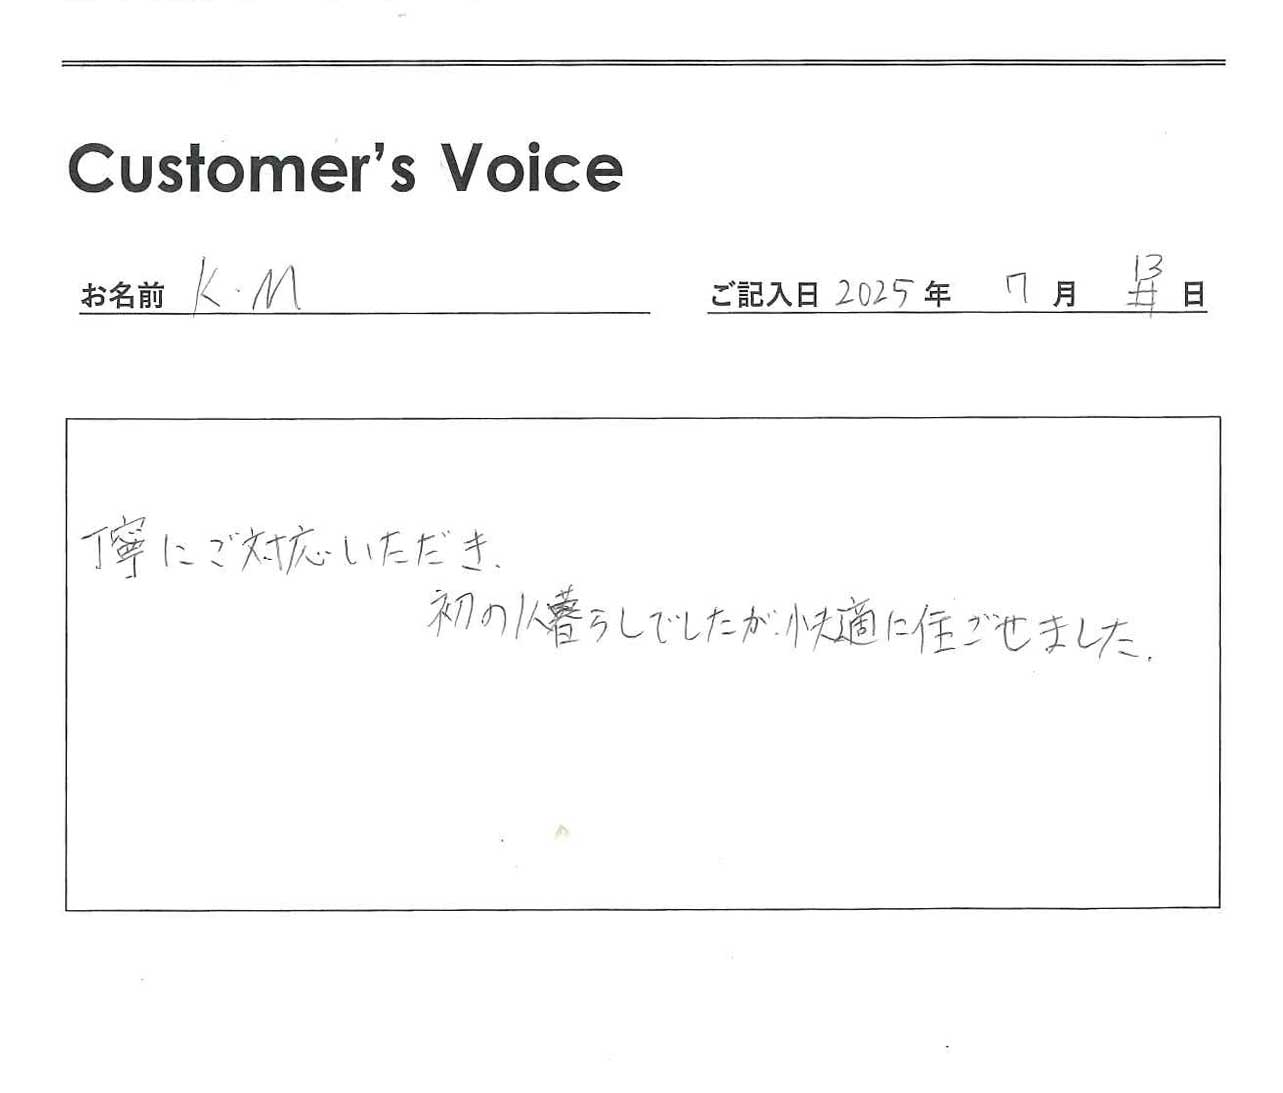 Customer's Voice
お名前 K.M ご記入日 2025年 7月 13日
丁寧にご対応いただき、
初の1人暮らしでしたが、快適に住ごせました。